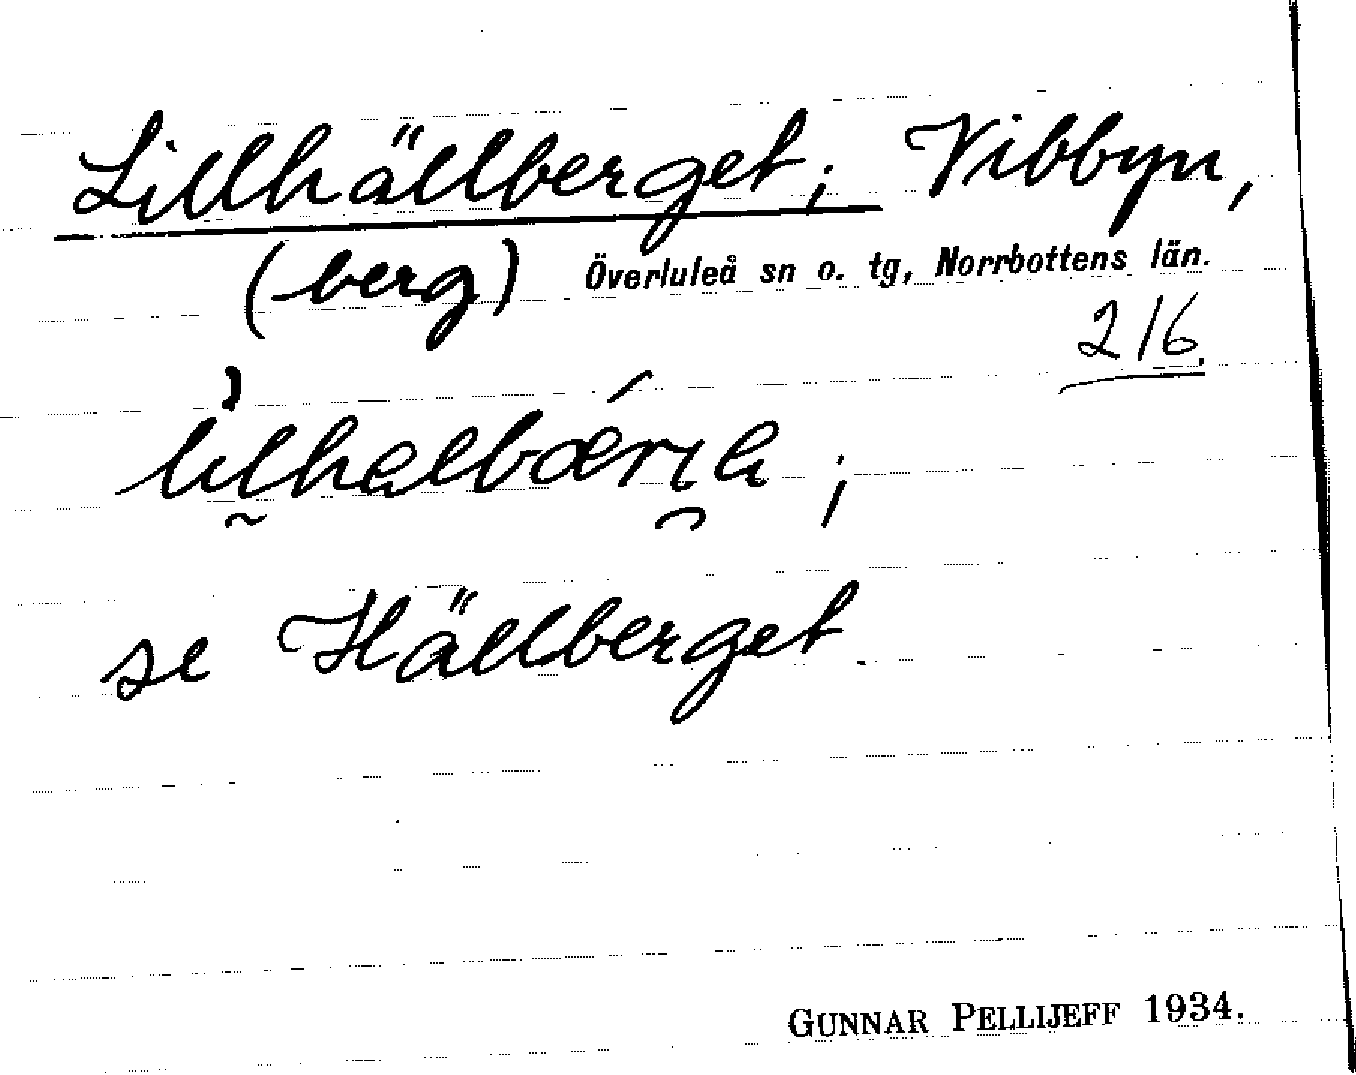 Lillhällberget; Vibbyn,
(berg) Överluleå sn o. tg, Norrbottens län.
216
se Hällberget
GUNNAR PELLIJEFF 1934.